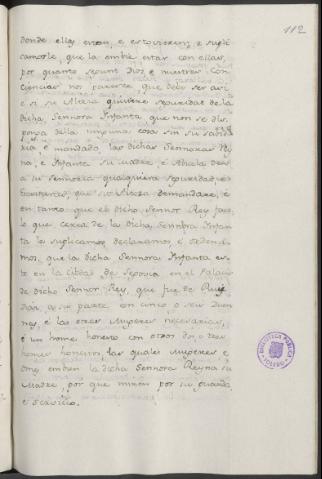 112
donde ellas están, e estovieren, e supli
camosle, que la embie estar con ellas,
por quanto segunt Dios e nuestras con
ciencias nos paresce que debe ser asi
e si su Alteza quisiere seguridat de la
dicha Sennora Infanta que non se dis
ponga della ninguna cosa sin su sabidu
ria e mandado, las dichas Sennoras Rey
na, e Infanta su Madre, e Abuela den
a su Sennoria qualquiera seguridat e
que su Alteza demandare, e
en tanto que el dicho Sennor Rey face
lo que cerca de la dicha Sennora Infan
ta le suplicamos, declaramos, e ordena
mos, que la dicha Sennora Infanta es
te en la Cibdat de Segovia en el Palacio
de dicho Sennor Rey, que fue de Ruy
Dias, a su parte con cinco o seis Duen
nas, e las otras Mugeres necesarias,
e un home honesto con otros dos, o tres
homes honestos, las quales Mugeres e
omes embien la dicha Sennora Reyna su
Madre, por que miren por su guarda
e servicio.
BIBLIOTECA PUBLICA
TOLEDO